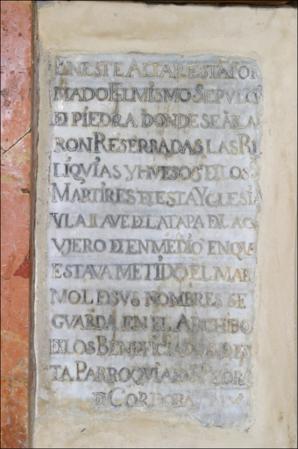 EN ESTE ALTAR ESTA FOR
MADO EL MISMO SEPULC
DE PIEDRA DONDE SE ALLA
RON RESERBADAS LAS RE
LIQVIAS Y HVESOS DE LOS
MARTIRES DE ESTA YGLESIA
Y LA LLAVE DE LA TAPA DE AG
VJERO DE EN MEDIO EN QUE
ESTAVA METIDO EL MAR
MOL DE SVS NOMBRES SE
GVARDA EN EL ARCHIBO
DE LOS BENEFICIADOS DE ES
TA PARROQVIA
DE CORDOBA